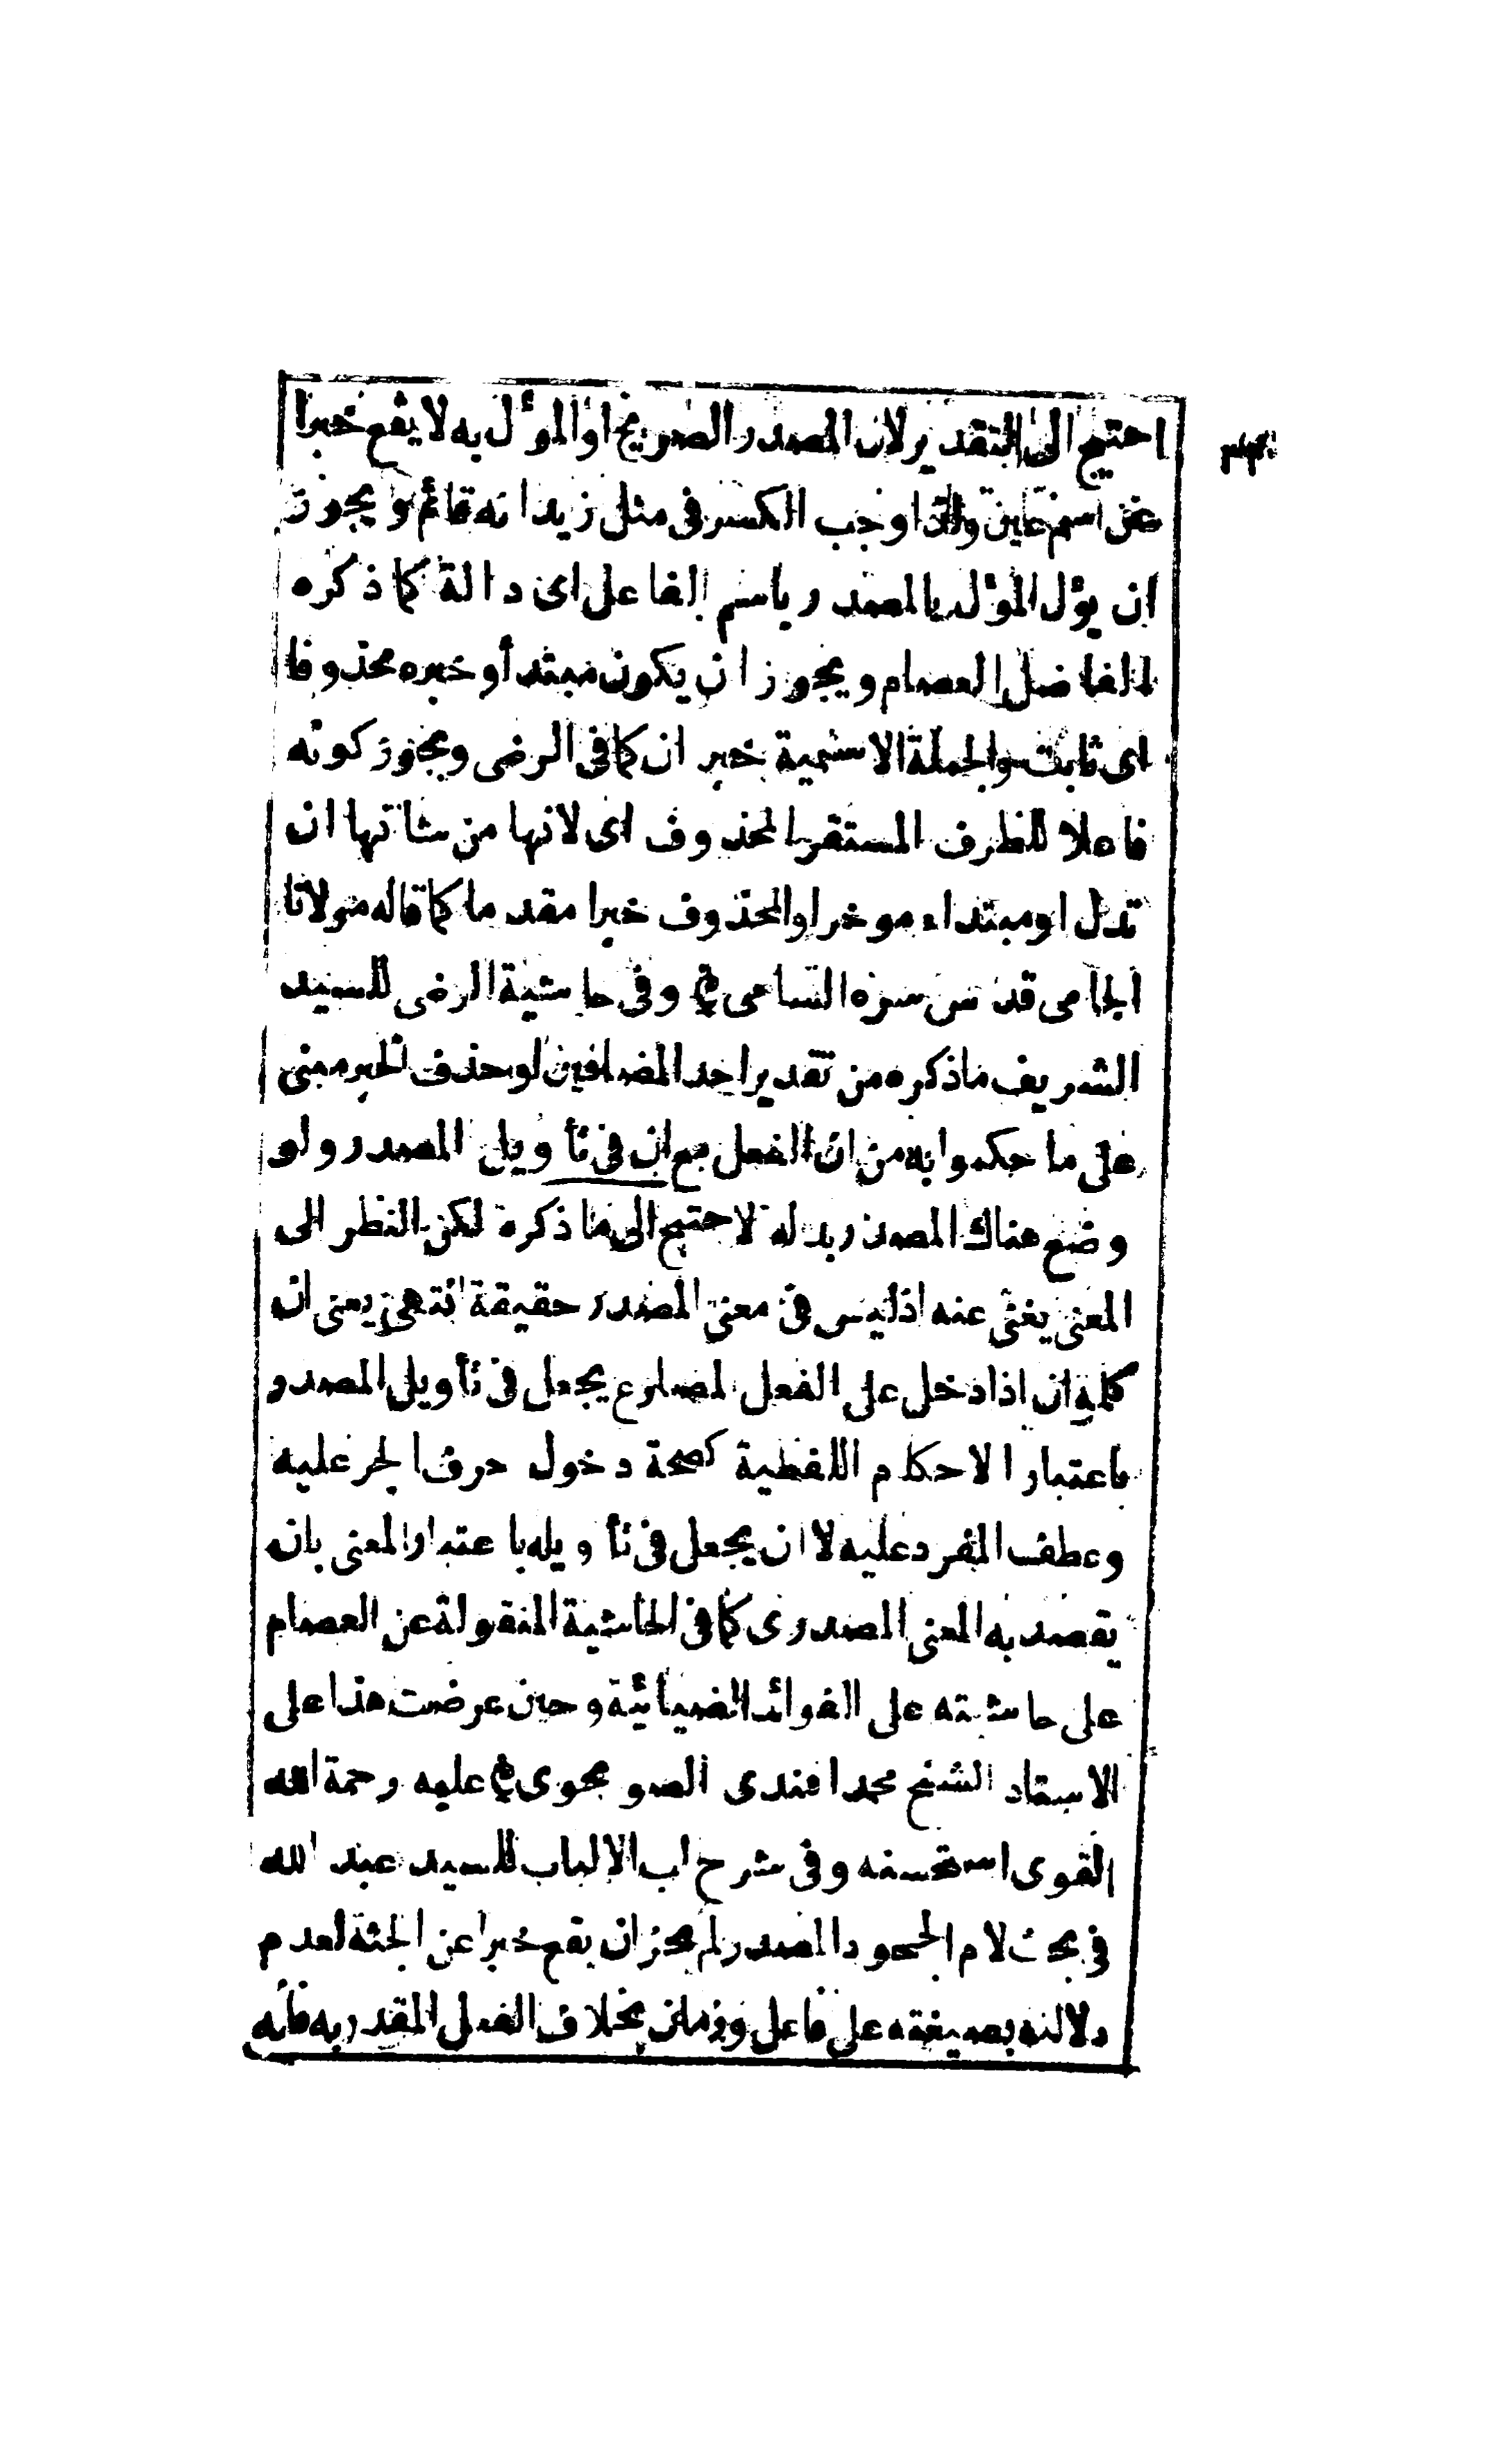 احتيج الى التقدير لان المصدر الصريح او المؤل به لا يقع خبرا
عن اسم عين ولذا وجب الكسر فى مثل زيد انه قائم ويجوز
ان يؤل المؤل بالمصدر باسم الفاعل اى دالة كما ذكره
الفاضل العصام ويجوز ان يكون مبتدأ وخبره محذوفا
اى ثابت والجملة الاسمية خبر ان كما فى الرضى ويجوز كونه
فاعلا للظرف المستقر المحذوف اى لانها من شانها ان
تدل او مبتداء موخرا والمحذوف خبرا مقدما كما قاله مولانا
الجامى قدس سره السامى وفى حاشية الرضى للسيد
الشريف ماذكره من تقدير احد المضافين او حذف الخبر مبنى
على ما حكموا به من ان الفعل مع ان فى تأويل المصدر ولو
وضع هناك المصدر بدله لاحتيج الى ما ذكره لكن النظر الى
المعنى يغنى عنه اذ ليس فى معنى المصدر حقيقة انتهى يعنى ان
كلمة ان اذا دخل على الفعل المضارع يجعل فى تأويل المصدر
باعتبار الاحكام اللفظية كصحة دخول حرف الجر عليه
وعطف المفرد عليه لا ان يجعل فى تأويله باعتبار المعنى بان
يقصد به المعنى المصدرى كما فى الحاشية المنقولة عن العصام
على حاشيته على الفوائد الضيائية وحين عرضت هذا على
الاستاد الشيخ محمد افندى الصوبجوى عليه رحمة الله
القوى استحسنه وفى شرح لب الالباب للسيد عبد الله
فى بحث لام الجحود المصدر لم يجز ان يقع خبرا عن الجثة لعدم
دلالته بصيغته على فاعل وزمان بخلاف الفعل المقدر به فانه